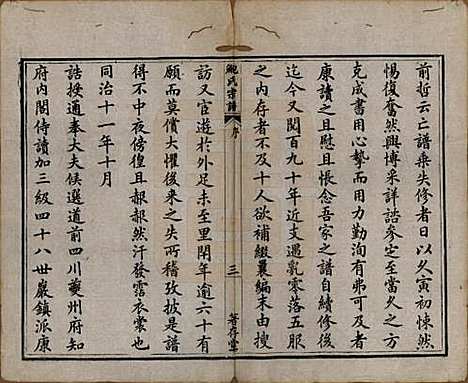 前哲云亡譜乘失修者日以久寅初悚然
惕復奮然興博采詳諮參定至當久之方
克成書用心摯而用力勤洵有弗可及者
康讀之且慰且悵念吾家之譜自續修後
迄今又閱百九十年近支遇亂零落五服
之內存者不及十人欲補綴曩編末由搜
鮑氏宗譜
序
三
著存堂
訪又官遊於外足未至里閈年逾六十有
願而莫償大懼後來之失所稽攷披是譜
得不中夜傍徨且赧赧然汗發霑衣裳也
同治十一年十月
誥授通奉大夫候選道前四川夔州府知
府內閣侍讀加三級四十八世巖鎮派康